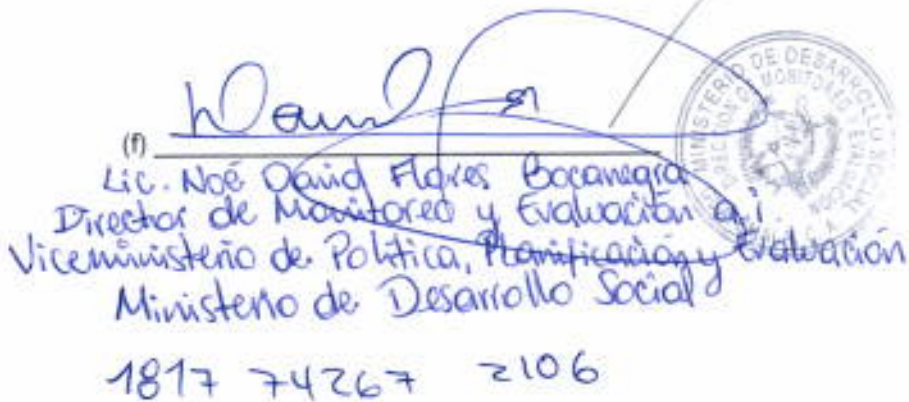 (f)
Lic. Noé David Flores Bocanegra
Director de Monitoreo y Evaluación a.i.
Viceministerio de Política, Planificación y Evaluación
Ministerio de Desarrollo Social
1817 74267 2106
MINISTERIO DE DESARROLLO SOCIAL
DIRECCION DE MONITOREO Y EVALUACION